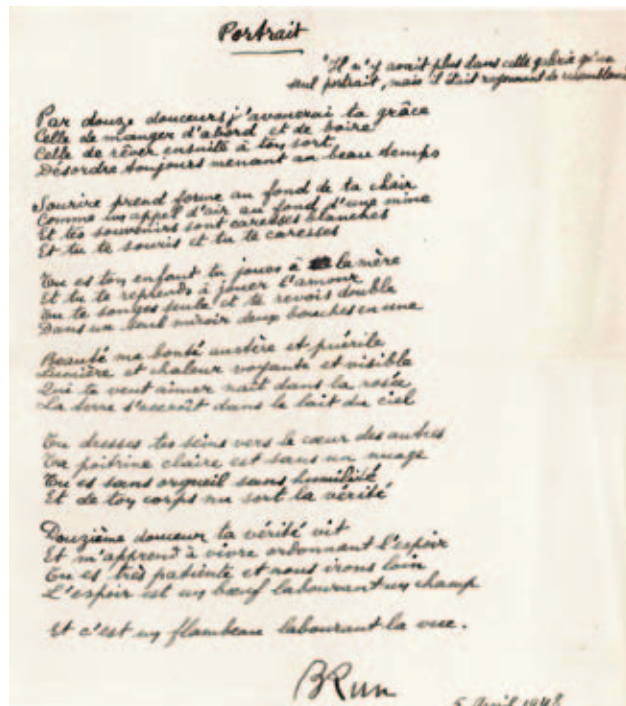 Portrait
"Il n'y avait plus dans cette galerie qu'un
seul portrait, mais il était rayonnant de ressemblance
Par douze douceurs j'avouerai ta grâce
Celle de manger d'abord et de boire
Celle de rêver ensuite à ton sort
Désordre toujours menant au beau temps
Sourire prend forme au fond de ta chair
Comme un appel d'air au fond d'une mine
Et tes souvenirs sont caresses blanches
Et tu te souris et tu te caresses
Tu es ton enfant tu joues à la mère
Et tu te reprends à jouer l'amour
Tu te songes seule et te revois double
Dans un seul miroir deux bouches en une
Beauté ma bonté austère et puérile
Lumière et chaleur voyante et visible
Qui te veut aimer naît dans la rosée
La terre s'accroît dans le lait du ciel
Tu dresses tes seins vers le cœur des autres
Ta poitrine claire est sans un nuage
Tu es sans orgueil sans humilité
Et de ton corps nu sort la vérité
Douzième douceur ta vérité vit
Et m'apprend à vivre ordonnant l'espoir
Tu es très patiente et nous irons loin
L'espoir est un bœuf labourant un champ
Et c'est un flambeau labourant la vue.
BRun
5 Avril 1948